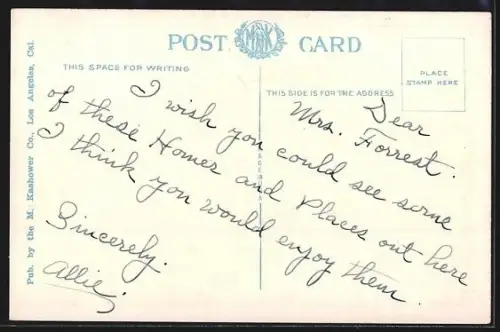 POST CARD
M K
THIS SPACE FOR WRITING
THIS SIDE IS FOR THE ADDRESS
PLACE
STAMP HERE
Pub. by the M. Kashower Co., Los Angeles, Cal.
Dear
Mrs. Forrest.
I wish you could see some
of these Homes and Places out here
I think you would enjoy them.
Sincerely.
Allie.